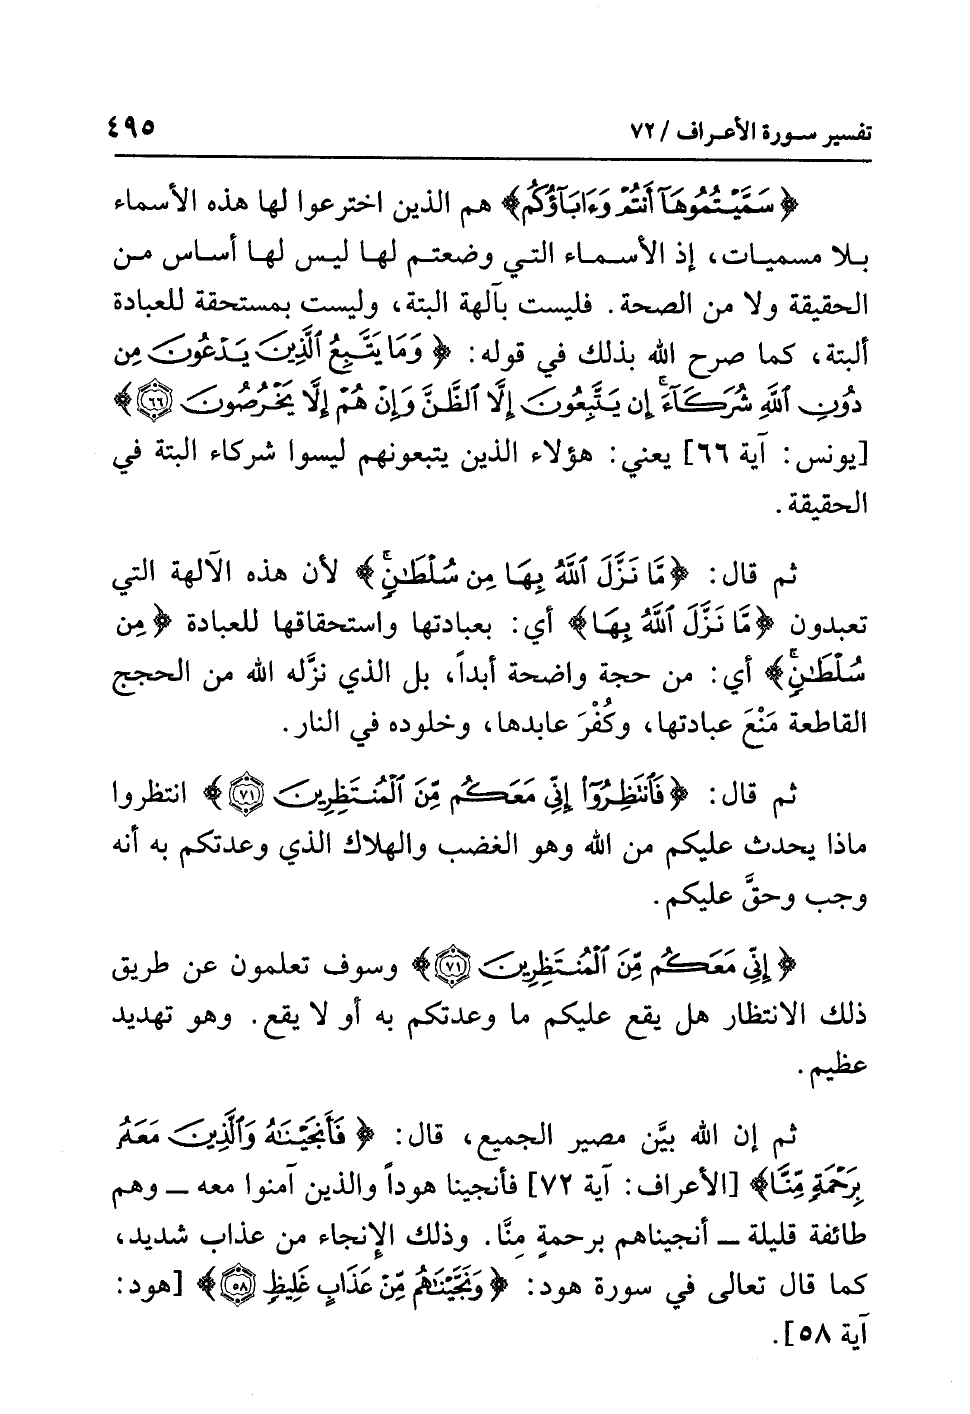 تفسير سورة الأعراف / ٧٢ ٤٩٥
﴿سَمَّيْتُمُوهَآ أَنتُمْ وَءَابَآؤُكُم﴾ هم الذين اخترعوا لها هذه الأسماء
بلا مسميات، إذ الأسماء التي وضعتم لها ليس لها أساس من
الحقيقة ولا من الصحة. فليست بآلهة البتة، وليست بمستحقة للعبادة
ألبتة، كما صرح الله بذلك في قوله: ﴿وَمَا يَتَّبِعُ ٱلَّذِينَ يَدْعُونَ مِن
دُونِ ٱللَّهِ شُرَكَآءَ ۚ إِن يَتَّبِعُونَ إِلَّا ٱلظَّنَّ وَإِنْ هُمْ إِلَّا يَخْرُصُونَ ٦٦﴾
[يونس: آية ٦٦] يعني: هؤلاء الذين يتبعونهم ليسوا شركاء البتة في
الحقيقة.
ثم قال: ﴿مَّا نَزَّلَ ٱللَّهُ بِهَا مِن سُلْطَٰنٍ ۚ﴾ لأن هذه الآلهة التي
تعبدون ﴿مَّا نَزَّلَ ٱللَّهُ بِهَا﴾ أي: بعبادتها واستحقاقها للعبادة ﴿مِن
سُلْطَٰنٍ ۚ﴾ أي: من حجة واضحة أبداً، بل الذي نزَّله الله من الحجج
القاطعة مَنْعَ عبادتها، وكُفْرَ عابدها، وخلوده في النار.
ثم قال: ﴿فَٱنتَظِرُوٓا۟ إِنِّى مَعَكُم مِّنَ ٱلْمُنتَظِرِينَ ٧١﴾ انتظروا
ماذا يحدث عليكم من الله وهو الغضب والهلاك الذي وعدتكم به أنه
وجب وحقَّ عليكم.
﴿إِنِّى مَعَكُم مِّنَ ٱلْمُنتَظِرِينَ ٧١﴾ وسوف تعلمون عن طريق
ذلك الانتظار هل يقع عليكم ما وعدتكم به أو لا يقع. وهو تهديد
عظيم.
ثم إن الله بيَّن مصير الجميع، قال: ﴿فَأَنجَيْنَٰهُ وَٱلَّذِينَ مَعَهُۥ
بِرَحْمَةٍ مِّنَّا﴾ [الأعراف: آية ٧٢] فأنجينا هوداً والذين آمنوا معه ـ وهم
طائفة قليلة ـ أنجيناهم برحمةٍ مِنَّا. وذلك الإنجاء من عذاب شديد،
كما قال تعالى في سورة هود: ﴿وَنَجَّيْنَٰهُم مِّنْ عَذَابٍ غَلِيظٍ ٥٨﴾ [هود:
آية ٥٨].